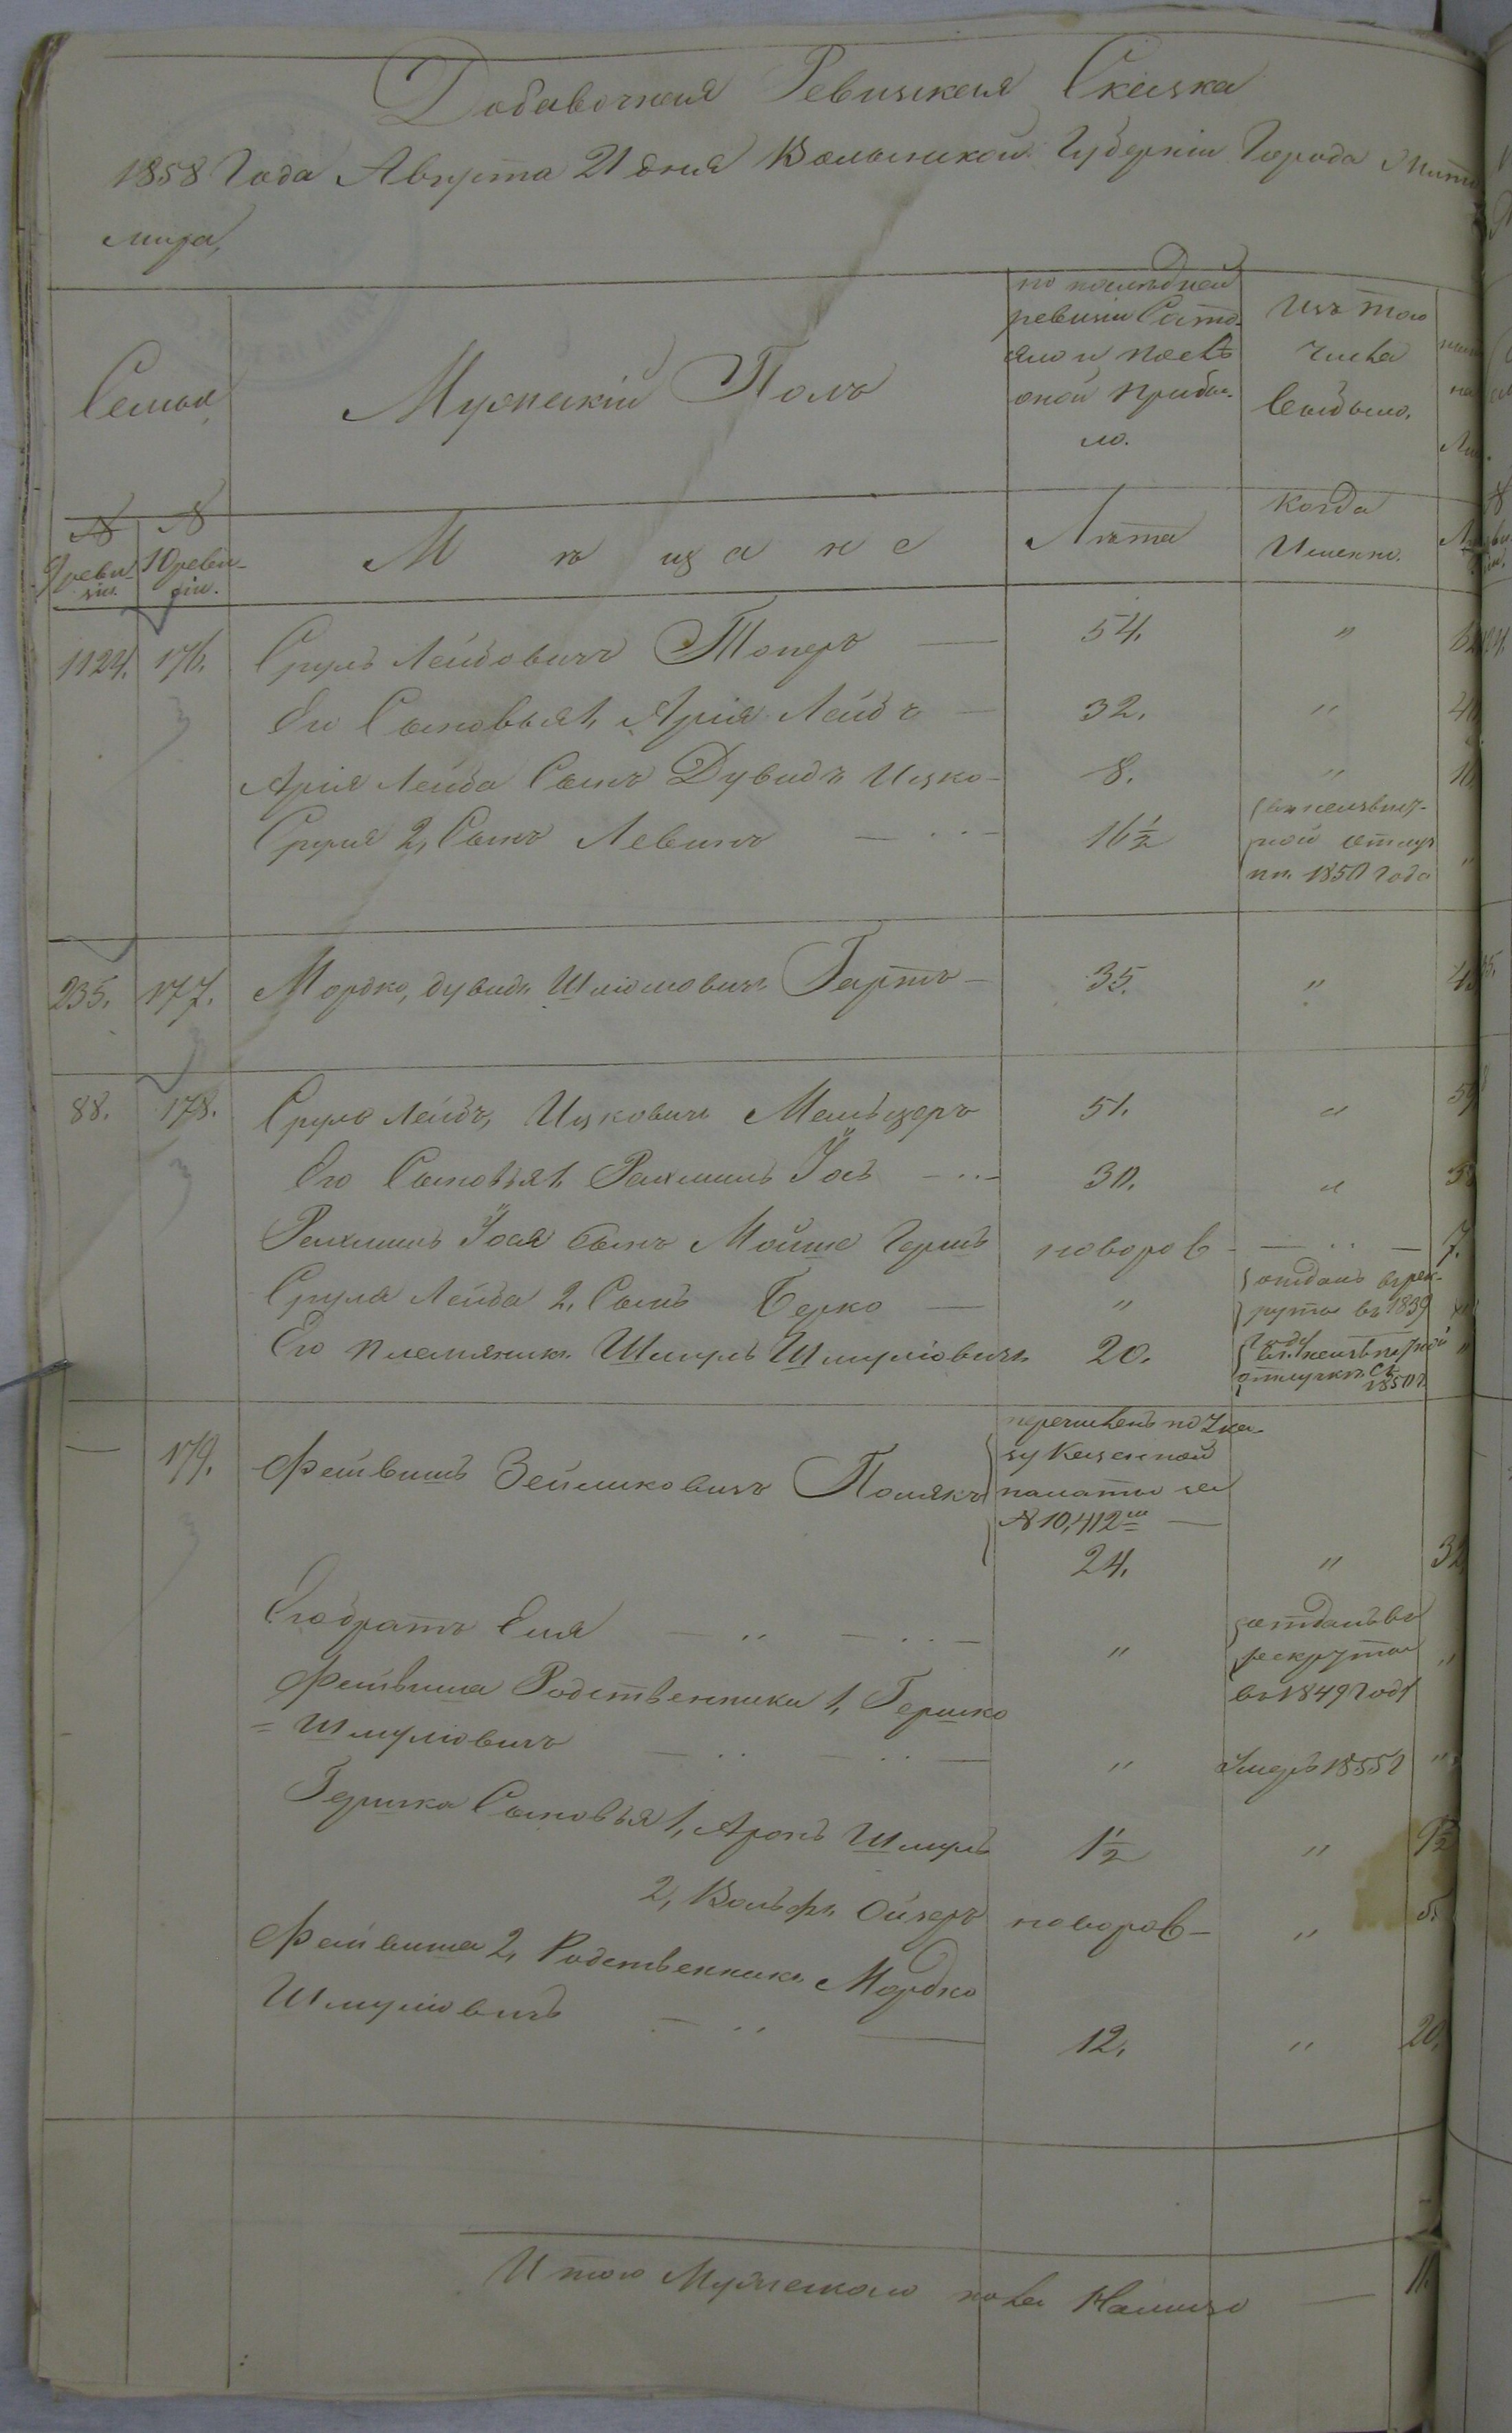 Добавочная Ревизская Сказка
1858 Года Августа 21 дня Волынской Губерніи Города Жито
мира,
Семья
Мужескій Полъ
по последней
ревизіи Состо-
яло и послѣ
оной прибы-
ло.
Изъ того
числа
выбыло.
№
9 реви-
зіи.
№
10 реви-
зіи.
М ѣ щ а н е
Лѣта
Когда
Именно.
1124. 176. Сруль Лейбовичъ Топеръ — 54. "
Его Сыновья 1, Арія Лейбъ — 32. "
Арія Лейба Сынъ Дувидъ Ицко — 8. "
Сруля 2, Сынъ Левинъ — 16½
въ неизвѣст-
ной отлуч
къ 1850 года "
235. 177. Мордко, дувидъ Шліомовичъ Гартъ — 35. "
88. 178. Срулъ Лейбъ, Ицковичъ Мельцеръ 51. " 59
Его Сыновья 1, Рахмиль Іось — 30. " 38
Рахмиль Іося сынъ Мойше Гершъ новоров — 7.
Сруля Лейба 2, Сынъ Берко — "
отданъ въ рек-
руты въ 1839
году
Его племяникъ Шмуль Шмуліовичъ 20.
въ неизвѣстной
отлучкѣ съ
1850 г. "
— 179. Фейвишъ Зейликовичъ Полякъ
перечисленъ по Ука-
зу Казенной
палаты за
№ 10,412ш —
24. " 32
Его братъ Еля — "
отданъ въ
рекруты
въ 1849 Году "
Фейвиша Родственники 1, Гершко
= Шмуліовичъ — " Умеръ 1855 г "
Гершка Сыновья 1, Аронъ Шмуль 1½ " 9½
2, Вольфъ Ойзеръ новоров — " 5.
Фейвиша 2, Родственникъ Мордко
Шмуліовичъ — 12. " 20.
Итого Мужескаго пола Налицо — 11.